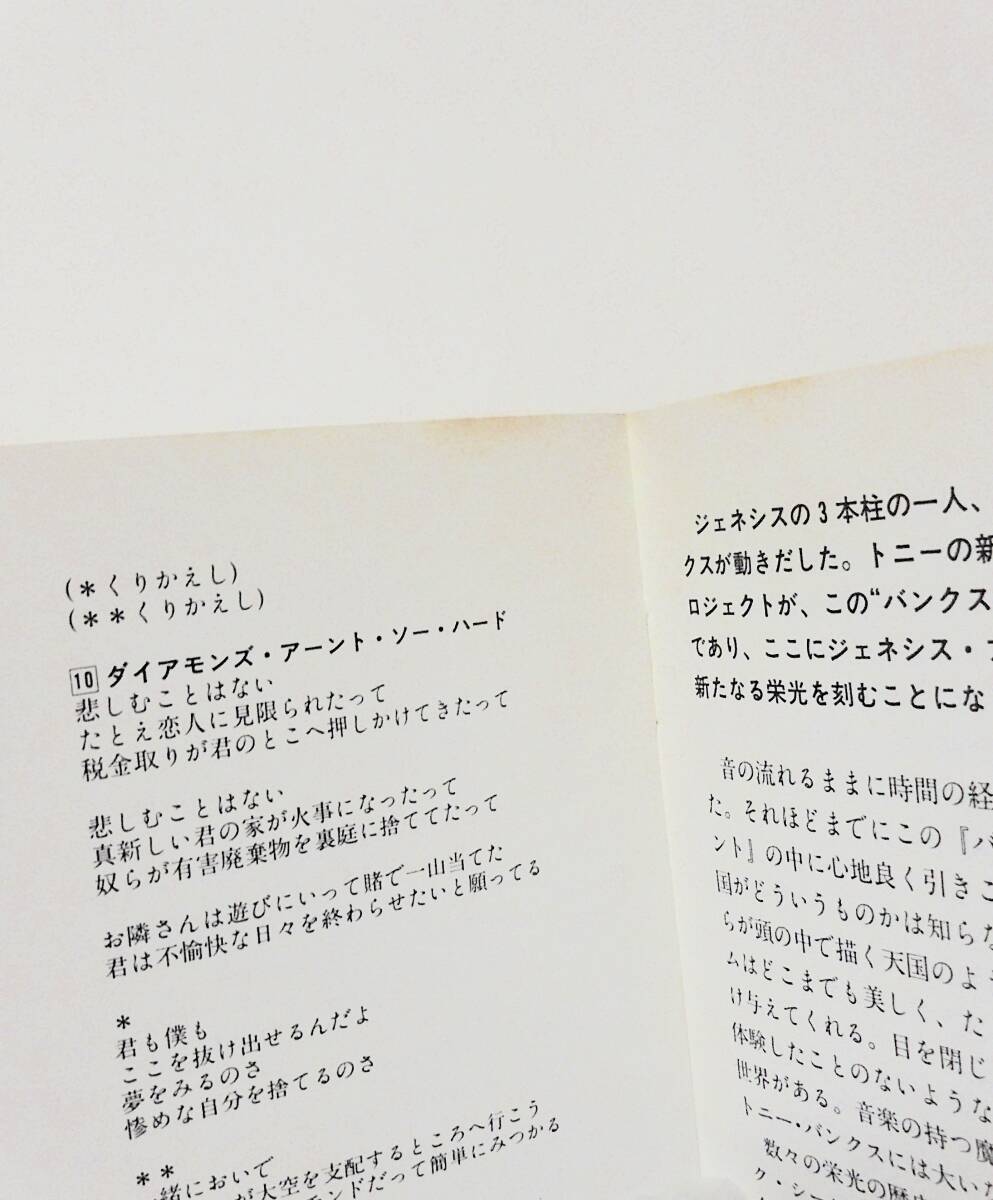 (*くりかえし)
(**くりかえし)
10 ダイアモンズ・アーント・ソー・ハード
悲しむことはない
たとえ恋人に見限られたって
税金取りが君のとこへ押しかけてきたって
悲しむことはない
真新しい君の家が火事になったって
奴らが有害廃棄物を裏庭に捨ててたって
お隣さんは遊びにいって賭で一山当てた
君は不愉快な日々を終わらせたいと願ってる
*
君も僕も
ここを抜け出せるんだよ
夢をみるのさ
惨めな自分を捨てるのさ
**
緒においで
が大空を支配するところへ行こう
モンドだって簡単にみつかる
ジェネシスの3本柱の一人、
クスが動きだした。トニーの新
ロジェクトが、この“バンクス
であり、ここにジェネシス・フ
新たなる栄光を刻むことにな
音の流れるままに時間の経
た。それほどまでにこの『バ
ント』の中に心地良く引きこ
国がどういうものかは知らな
らが頭の中で描く天国のよう
ムはどこまでも美しく、た
け与えてくれる。目を閉じ
体験したことのないような
世界がある。音楽の持つ魔
トニー・バンクスには大い
数々の栄光の歴
ク・シ